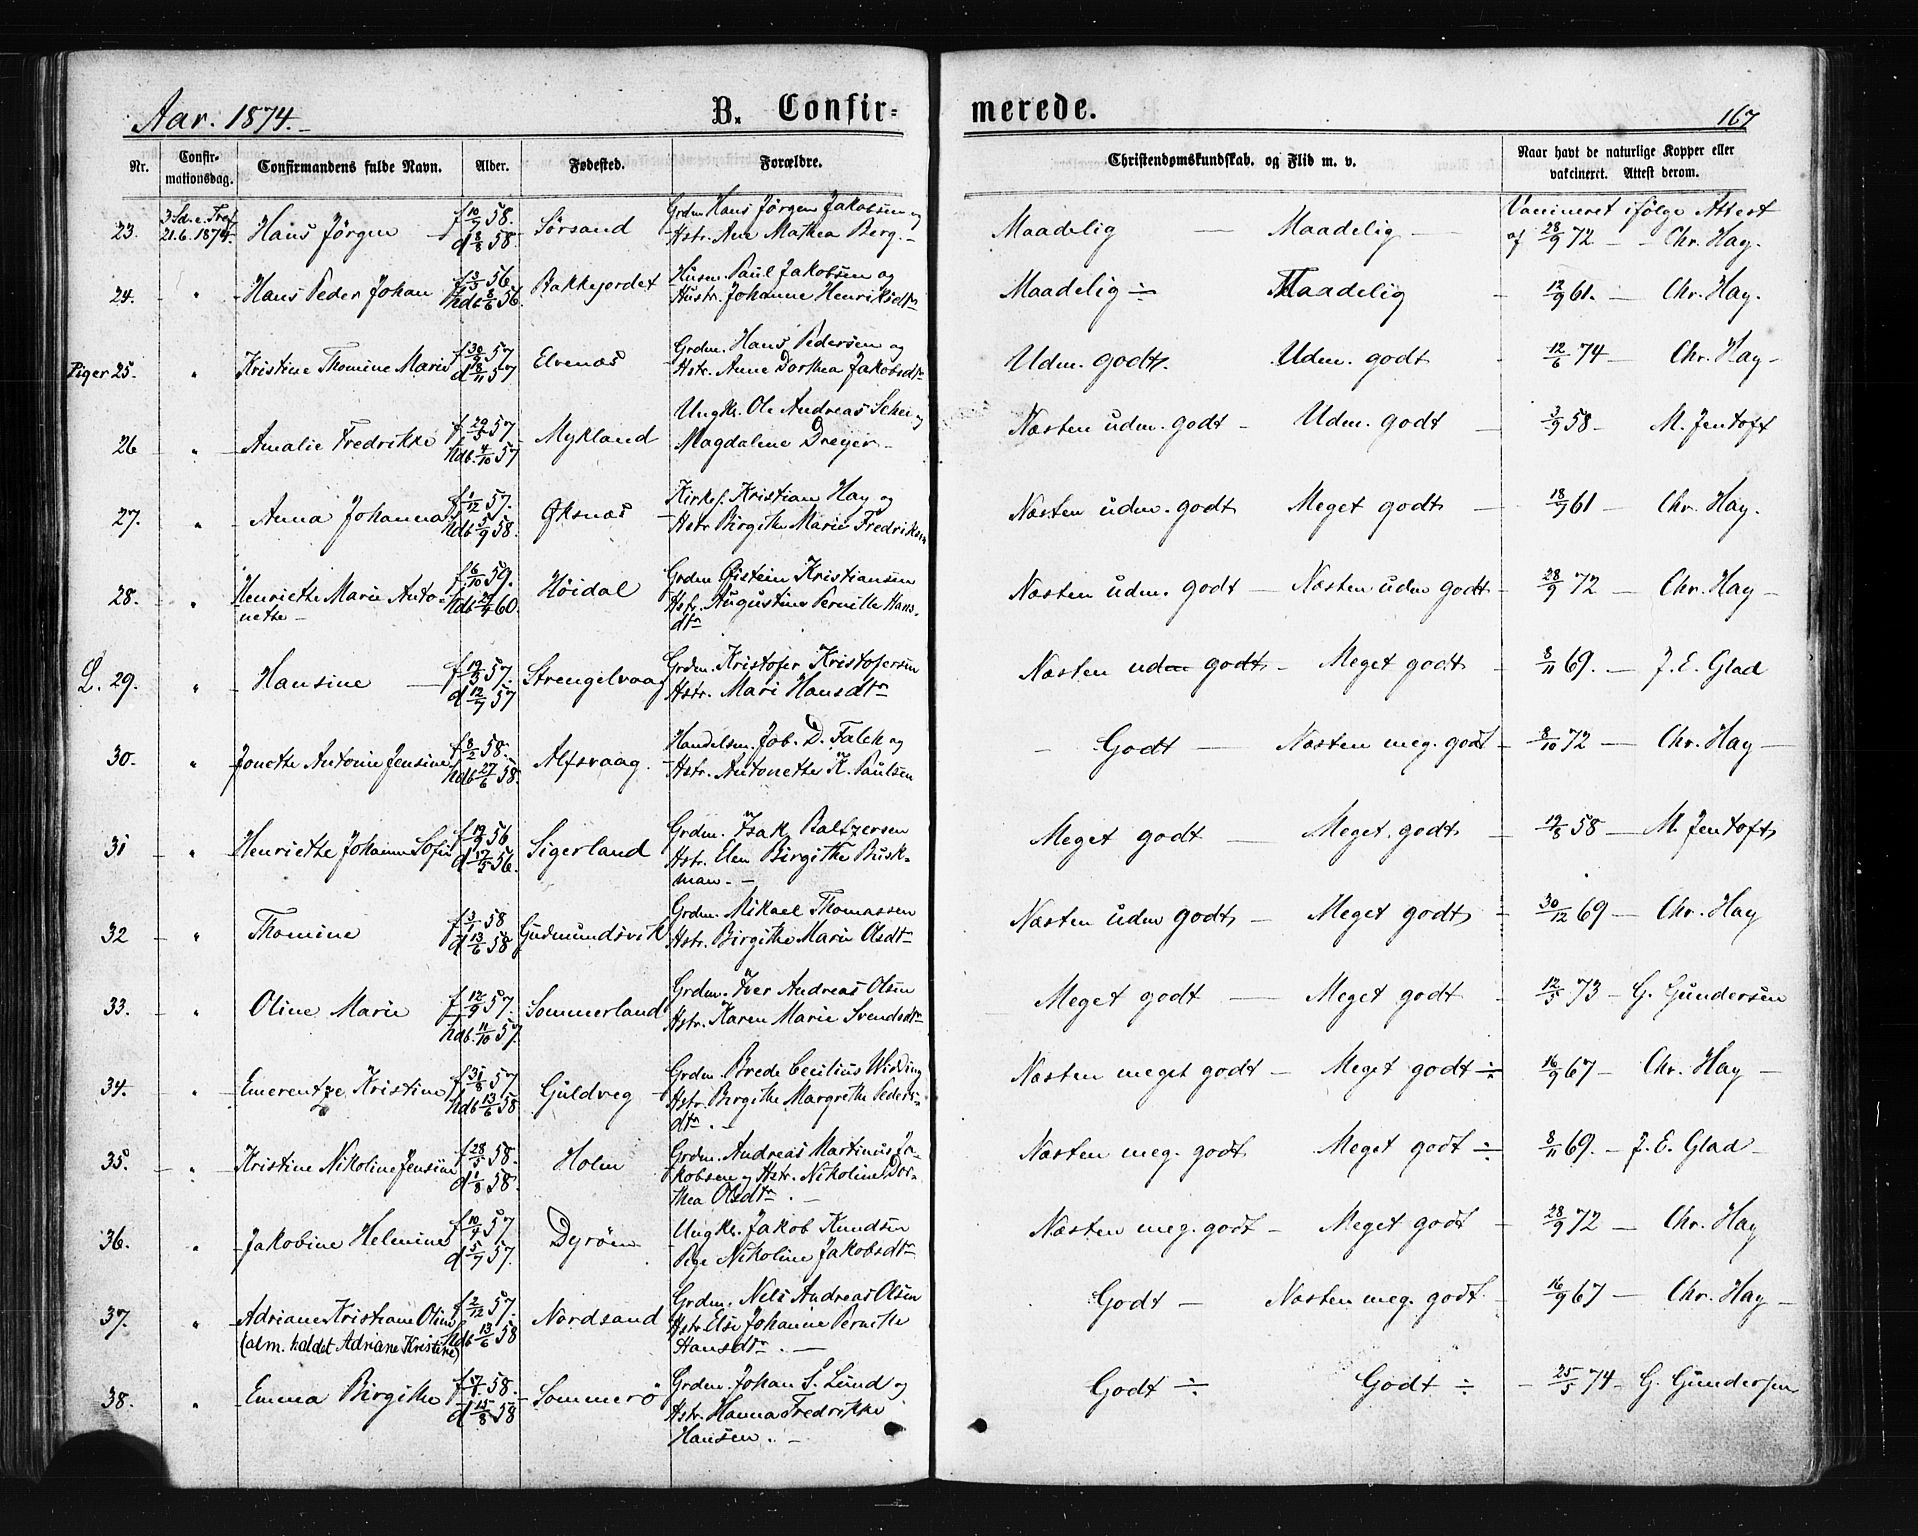 Aar. 1874.
B. Confir-
merede.
167
Nr.
Confir-
mationsdag.
Confirmandens fulde Navn.
Alder.
Fødested.
Forældre.
Christendomskundskab. og Flid m. v.
Naar havt de naturlige Kopper eller
vakcineret. Attest derom.
3 Sd. e. Tref. f 10/7 58. Grdm Hans Jørgen Jakobsen og Vaccineret ifølge Attest
23. 21.6.1874. Hans Jørgen d 8/8 58. Sørsand Hstr. Ane Mathea Berg. Maadelig Maadelig af 28/9 72 Chr. Hay.
f 3/3 56 Husm. Paul Jakobsen og
24. " Hans Peder Johan hdb 8/6 56. Bakkejordet Hustr. Johanne Henriksdtr Maadelig ÷ Maadelig 12/9 61. Chr. Hay.
f 30/9 57 Grdm. Hans Pedersen og
Piger 25. " Kristine Thomine Marie d 18/11 57 Elvenæs Hstr. Anne Dorthea Jakobsdtr Udm. godt. Udm. godt 12/6 74 Chr. Hay
f 29/3 57 Ungk. Ole Andreas Schei og
26 " Amalie Fredrikke hdb. 4/10 57 Mykland Magdalene Dreyer Næsten udm. godt Udm. godt 3/9 58 M. Jentoft
f 1/12 57. Kirkes. Kristian Hay og
27. " Anna Johanna hdb 5/9 58. Øksnæs Hstr Birgithe Marie Fredriksen Næsten udm. godt Meget godt 18/9 61 Chr. Hay.
f 6/10 59. Grdm Øistein Kristiansen
28. " Henriette Marie Anto- hdb 29/4 60. Høidal Hstr. Augustine Pernille Hans- Næsten udm. godt Næsten udm godt 28/9 72 Chr. Hay
nette dtr
f 19/3 57. Grdm. Kristofer Kristofersen
L. 29. " Hansine d 12/7 57 Strengelvaag Hstr. Mari Hansdtr Næsten udm godt Meget godt 8/11 69. J. E. Glad
f 8/2 58. Handelsm. Job. D. Falch og
30. " Jonette Antonie Jensine hdb 27/6 58. Alfsvaag. Hstr. Antonette K. Paulsen Godt Næsten meg. godt 8/10 72 Chr. Hay
f 19/3 56 Grdm. Isak Baltzersen
31 " Henriette Johanne Sofie d 17/5 56. Sigerland Hstr. Elen Birgithe Busk- Meget godt Meget godt 19/8 58 M. Jentoft
man.
f 3/1 58 Grdm. Mikael Thomassen
32 " Thomine d 13/6 58 Gudmundsvik Hstr. Birgithe Marie Olsdtr Næsten udm godt Meget godt 30/12 69 Chr. Hay
f 12/9 57. Grdm. Iver Andreas Olsen
33. " Oline Marie hdb. 11/10 57. Sommerland Hstr. Karen Marie Svendsdtr Meget godt Meget godt 12/5 73 G. Gundersen
f 31/8 57 Grdm. Brede Cecilius Widding
34. " Emerentze Kristine hdb 13/6 58 Guldveg Hstr. Birgithe Margrethe Peders- Næsten meget godt Meget godt ÷ 16/9 67 Chr. Hay
dtr.
f 28/5 58. Grdm. Andreas Martinus Ja-
35. " Kristine Nikoline Jensine d 1/8 58. Holm kobsen og Hstr. Nikoline Dor- Næsten meg. godt Meget godt ÷ 8/11 69. J. E. Glad
thea Olsdtr.
f 10/4 57 Ungk. Jakob Knudsen
36. " Jakobine Helmine d 5/7 57. Dyrøen Pige Nikoline Jakobsdtr Næsten meg. godt Meget godt 28/9 72 Chr. Hay
f 2/12 57. Grdm. Nils Andreas Olsen
37. " Adriane Kristiane Oline hdb 13/6 58 Nordsand Hstr. Else Johanne Pernille Godt Næsten meg. godt 16/9 67 Chr. Hay
(alm. kaldet Adriane Kristine) Hansdtr.
f 17/1 58. Grdm. Johan S. Lund og
38. " Emma Birgithe d 15/8 58 Sommerö Hstr. Hanna Fredrikke Godt ÷ Godt ÷ 25/5 74 G. Gundersen
Hansen.